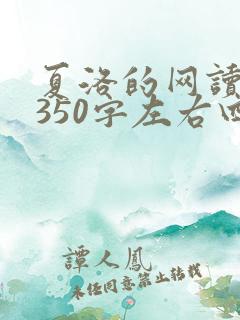 夏洛的网读
350字左右四
譚人鳳
未经同意禁止转载